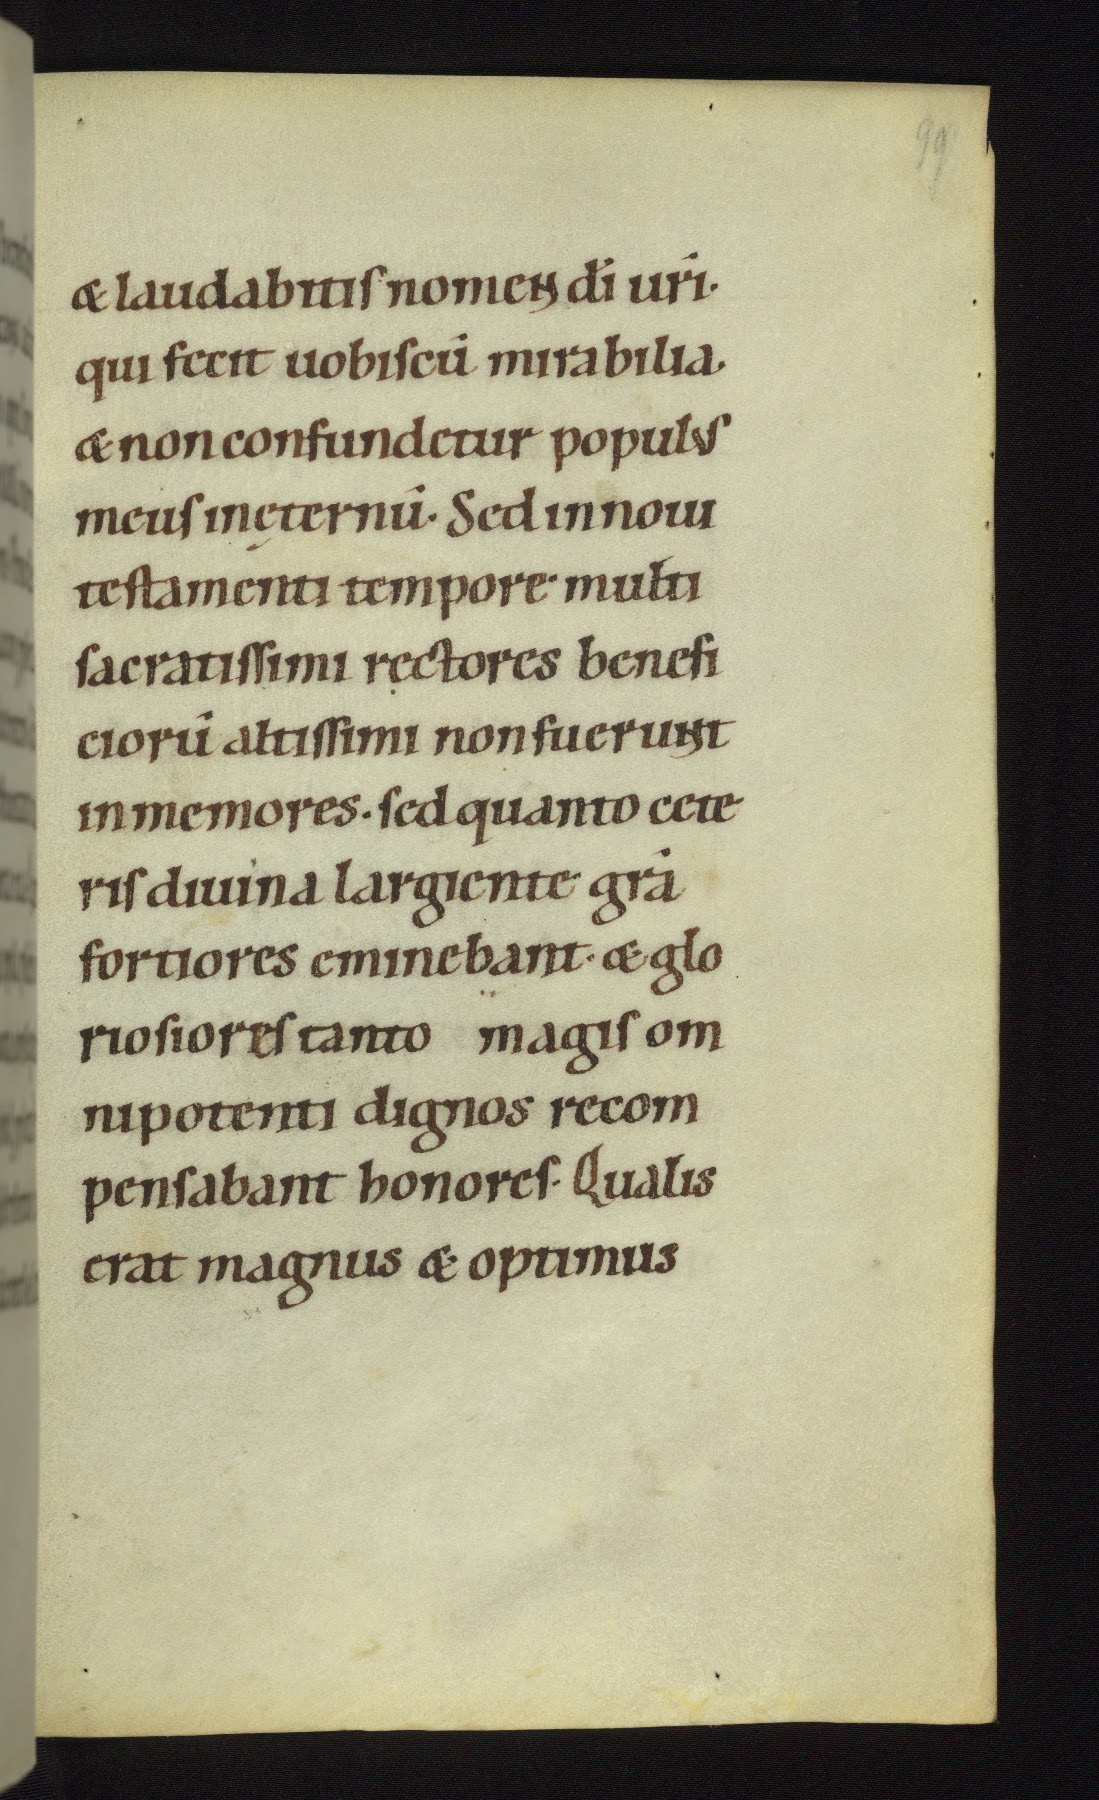 99
& laudabitis nomen dī uri·
qui fecit uobiscū mirabilia·
& non confundetur populus
meus in ęternū· Sed in noui
testamenti tempore· multi
sacratissimi rectores benefi
ciorū altissimi non fuerunt
inmemores· sed quanto cete
ris diuina largiente grā
fortiores eminebant· & glo
riosiores tanto magis om
nipotenti dignos recom
pensabant honores· Qualis
erat magnus & optimus